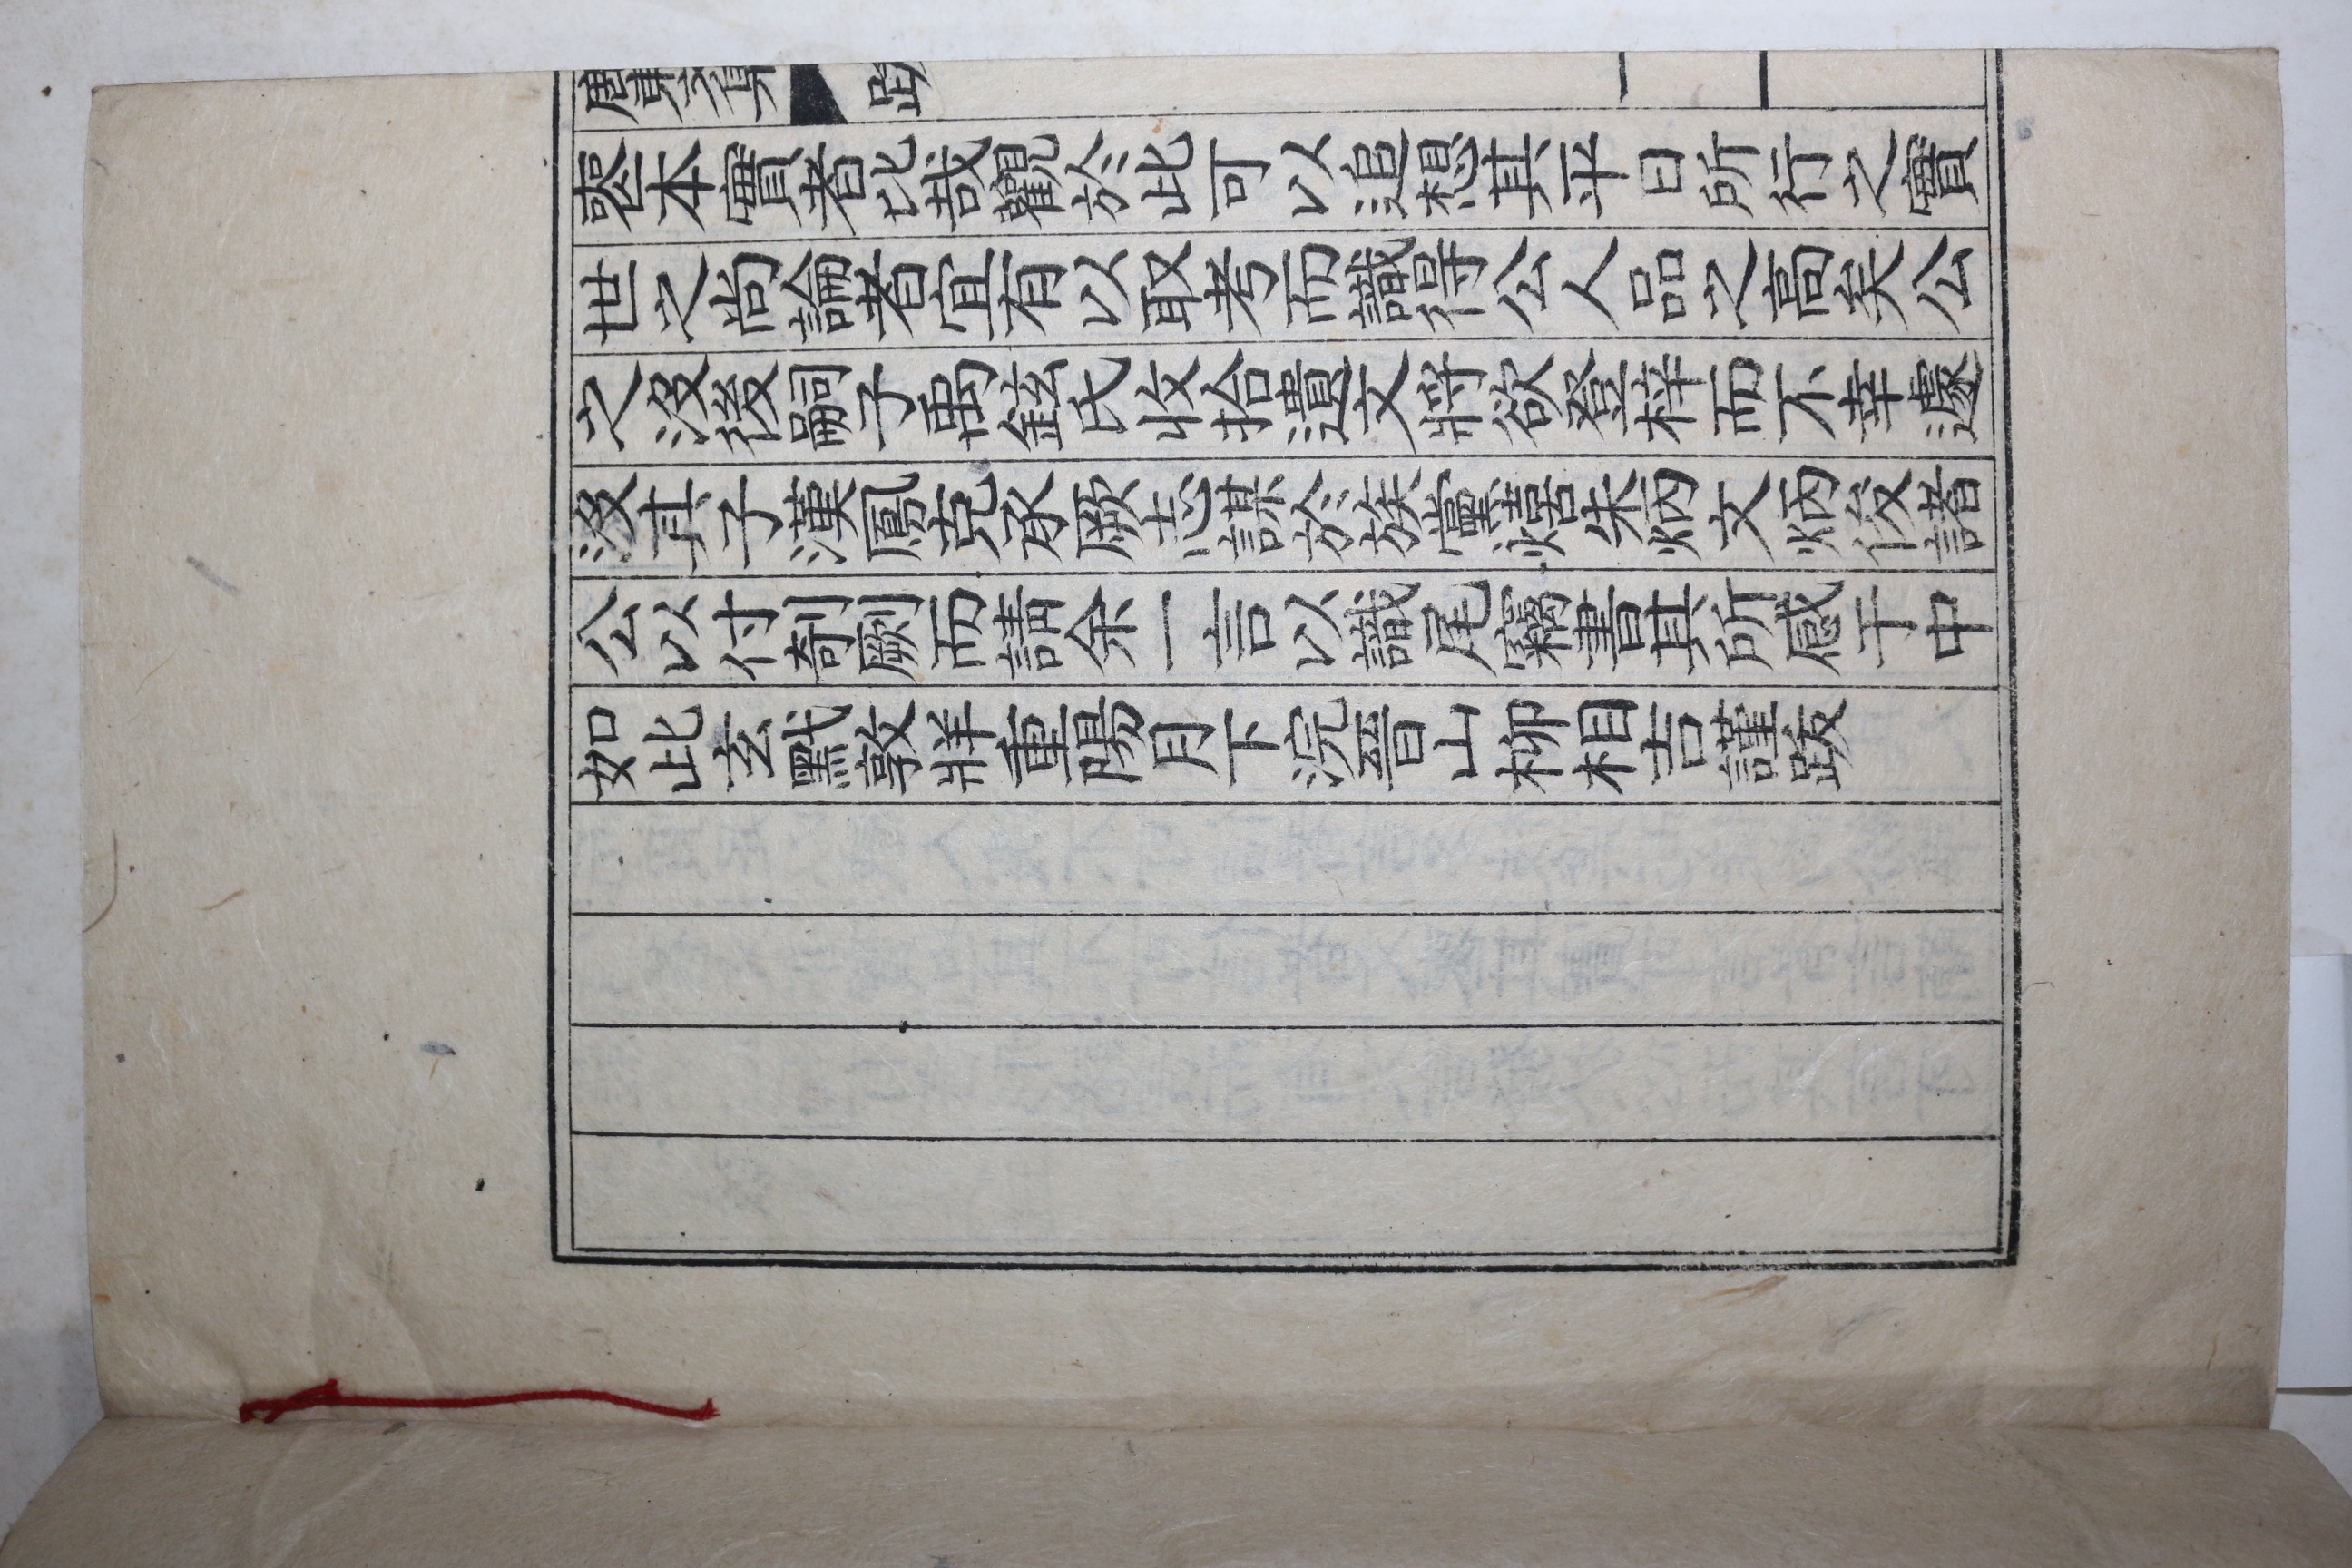 東文集 跋 一
喪本實者比哉觀於此可以追想其平日所行之實
世之尚論者宜有以取考而識得公人品之高矣公
之沒後嗣子禹鉉氏收拾遺文將欲登梓而不幸遽
沒其子漢鳳克承厥志謀於族黨熺朱炳文炳俊諸
公以付剞劂而請余一言以識尾竊書其所感于中
如此玄黓敦牂重陽月下浣晉山柳相吉謹跋